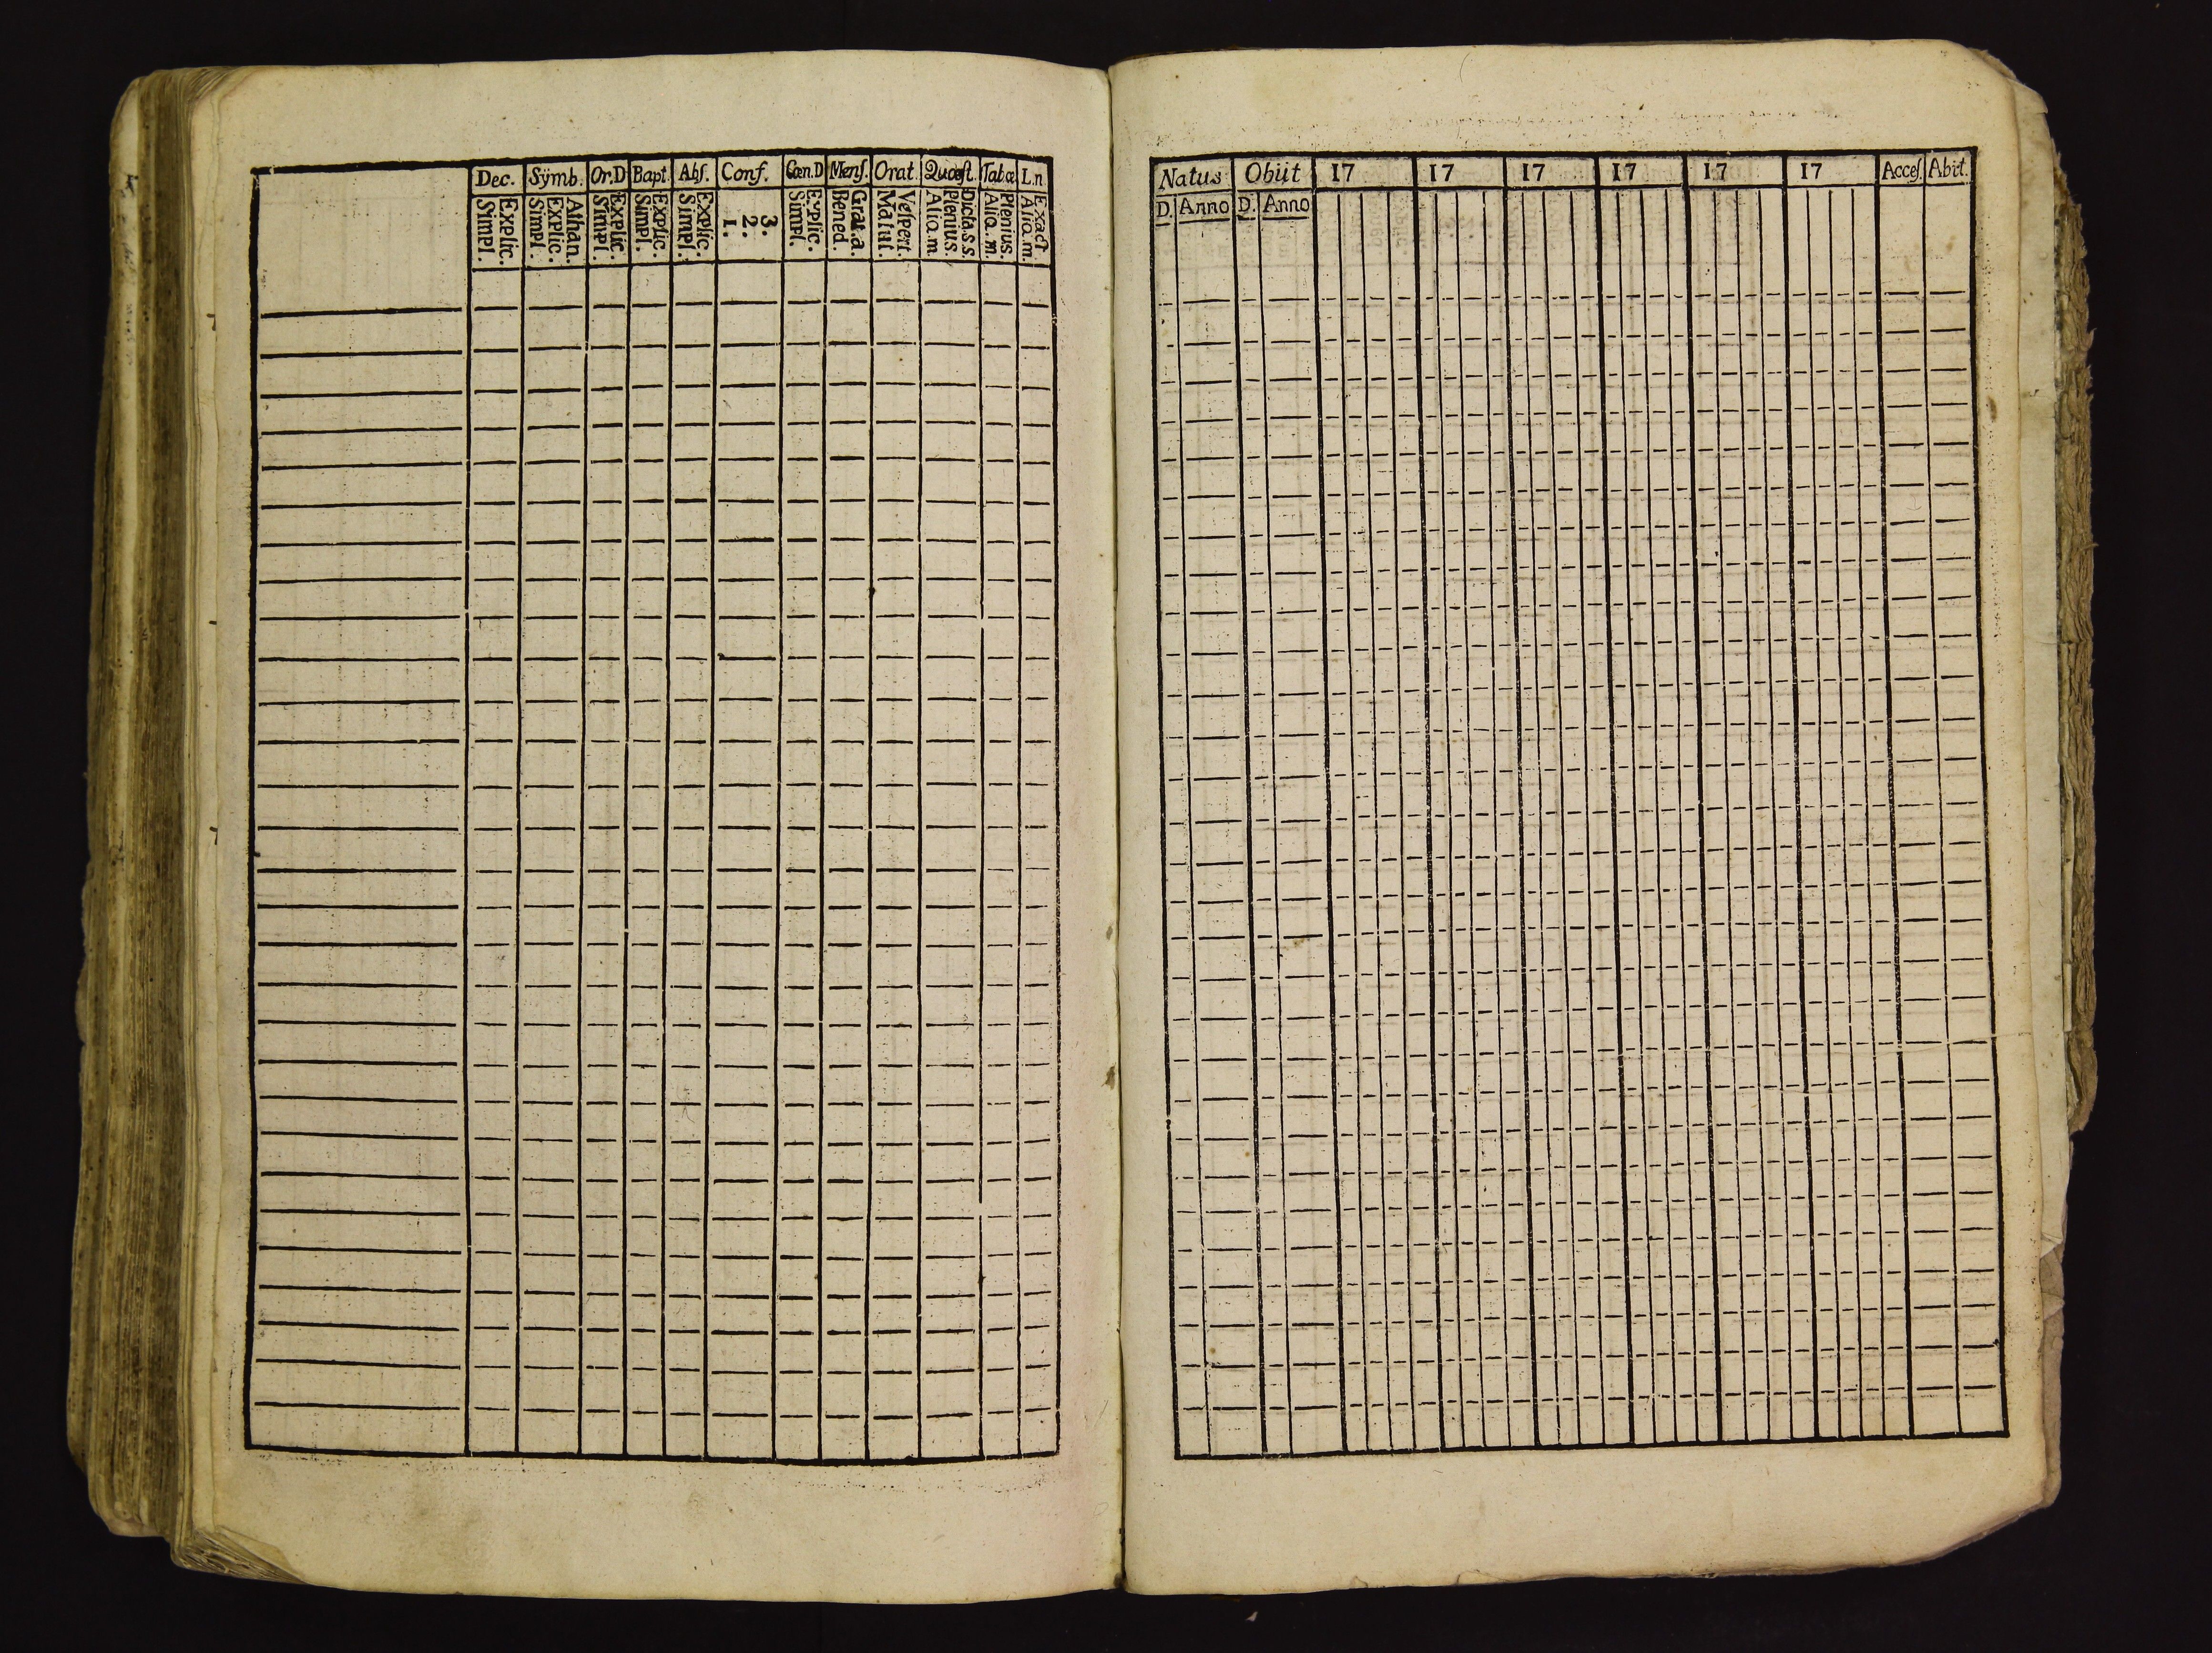 Dec. Sÿmb. Or.D Bapt. Abſ. Conf. Cœn.D Menſ. Orat. Quæſt. Tabœ L.n
Explic.
Simpl.
Athan.
Explic.
Simpl.
Explic.
Simpl.
Explic.
Simpl.
Explic.
Simpl.
3.
2.
1.
Explic.
Simpl.
Grat.a.
Bened.
Veſpert.
Matut.
Dicta.s.s.
Plenius.
Aliq.m.
Plenius.
Aliq.m.
Exact
Aliq.m.
Natus Obiit 17 17 17 17 17 17 Acceſ. Abit.
D. Anno D. Anno